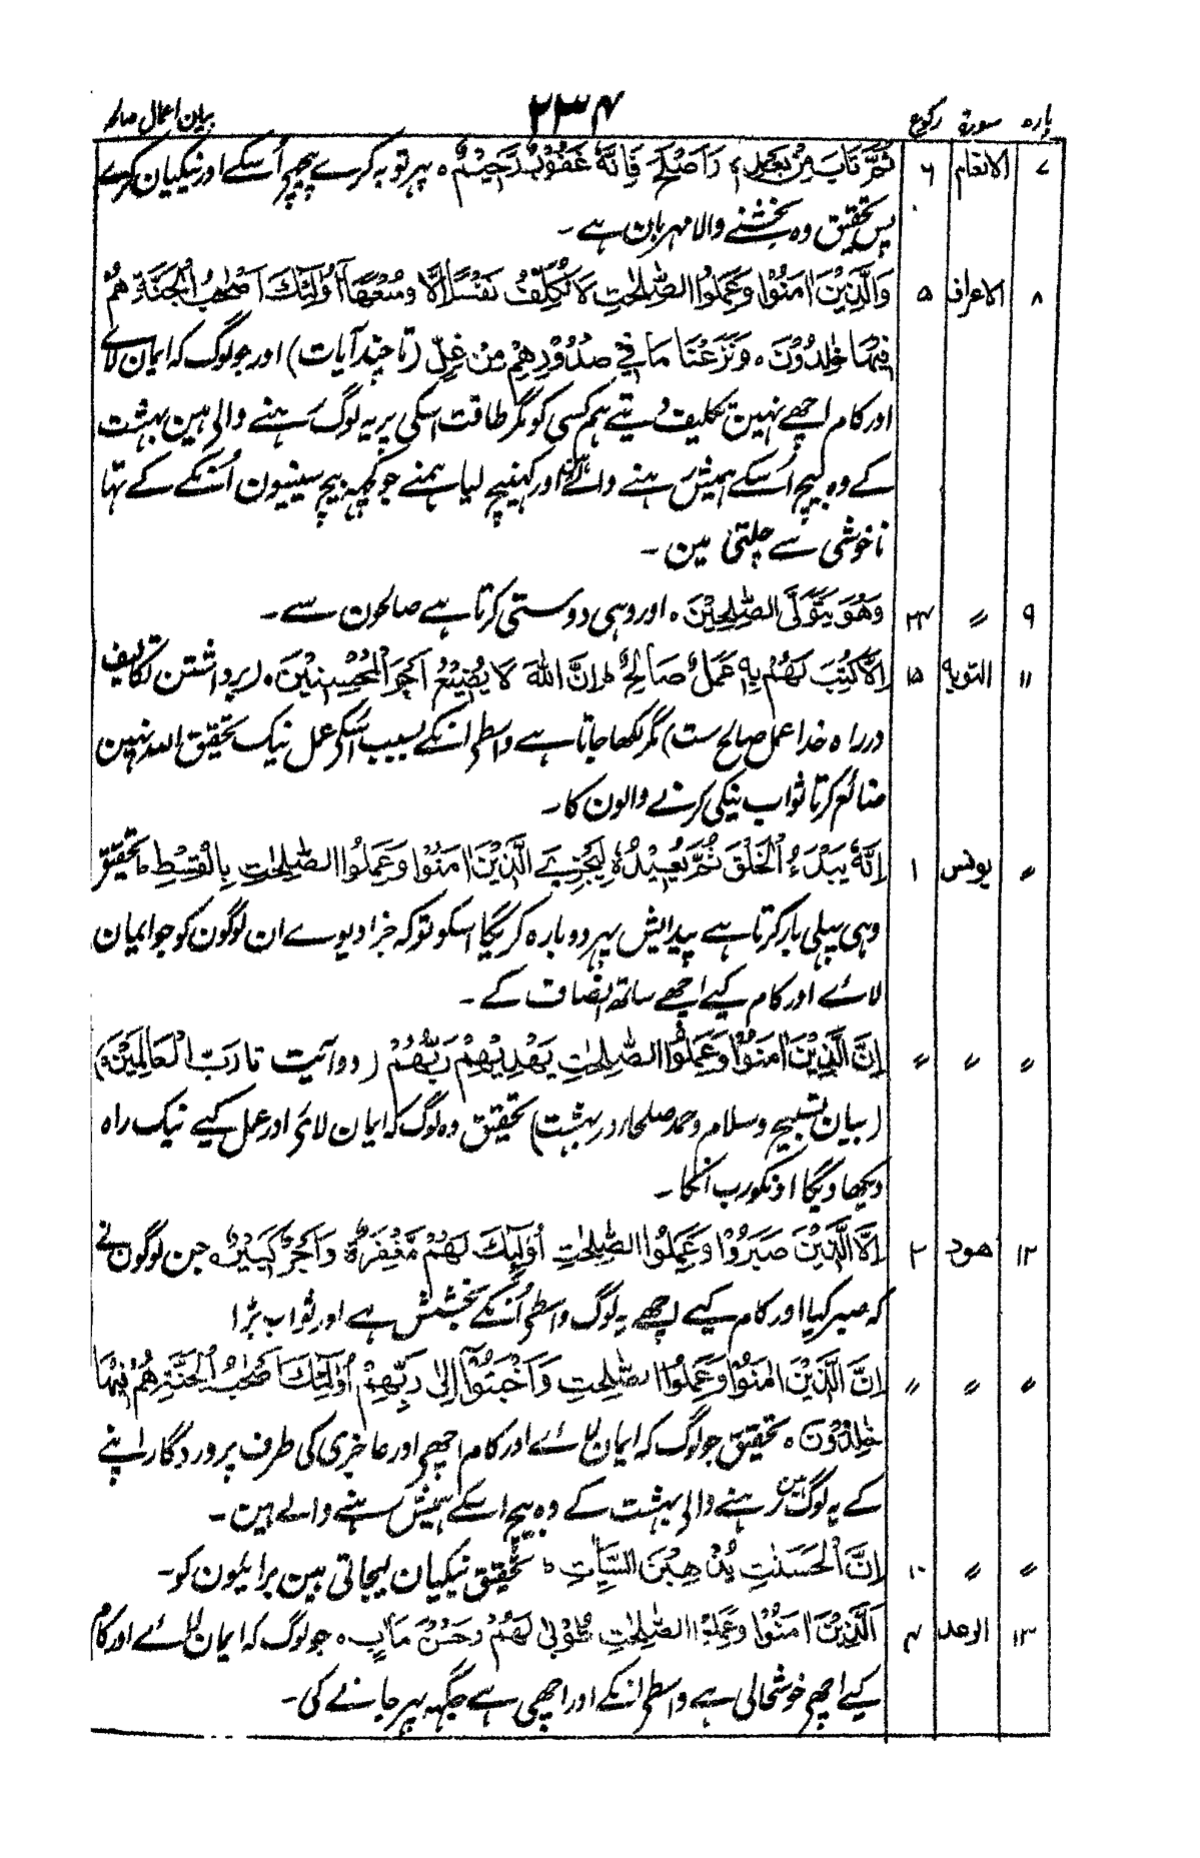 پارہ سورۃ رکوع ۲۳۴ بیان اعمال صالحہ
۷ الانعام ۶ ثُمَّ تَابَ مِنْۢ بَعْدِهٖ وَاَصْلَحَ فَاِنَّهٗ غَفُوْرٌ رَّحِيْمٌ ہ پہر توبہ کرے پیچھے اُسکے اور نیکیان کرے
پس تحقیق وہ بخشنے والا مہربان ہے۔
۸ الاعراف ۵ وَالَّذِيْنَ اٰمَنُوْا وَعَمِلُوا الصّٰلِحٰتِ لَا نُكَلِّفُ نَفْسًا اِلَّا وُسْعَهَا اُولٰٓئِكَ اَصْحٰبُ الْجَنَّةِ هُمْ
فِيْهَا خٰلِدُوْنَ ہ وَنَزَعْنَا مَا فِيْ صُدُوْرِهِمْ مِّنْ غِلٍّ (تا چند آیات) اور جو لوگ کہ ایمان لائے
اور کام اچھے نہین تکلیف دیتے ہم کسی کو مگر طاقت اسکی پر یہ لوگ رہنے والی ہین بہشت
کے وہ بیچ اُسکے ہمیش رہنے والے ہین اور کہینچ لیا ہمنے جو کچھ بیچ سینیون اُنکے کے تہا
ناخوشی سے چلتی مین۔
۹ 〃 ۲۴ وَهُوَ يَتَوَلَّى الصّٰلِحِيْنَ ہ اور وہی دوستی کرتا ہے صالحون سے۔
۱۱ التوبہ ۱۵ اِلَّا كُتِبَ لَهُمْ بِهٖ عَمَلٌ صَالِحٌ ط اِنَّ اللّٰهَ لَا يُضِيْعُ اَجْرَ الْمُحْسِنِيْنَ ہ (برداشتن تکالیف
در راہ خدا عمل صالح ست) مگر لکھا جاتا ہے واسطی انکے بسبب اسکی عمل نیک تحقیق اللہ نہین
ضائع کرتا ثواب نیکی کرنے والون کا۔
〃 یونس ۱ اِنَّهٗ يَبْدَءُ الْخَلْقَ ثُمَّ يُعِيْدُهٗ لِيَجْزِيَ الَّذِيْنَ اٰمَنُوْا وَعَمِلُوا الصّٰلِحٰتِ بِالْقِسْطِ ط تحقیق
وہی پہلی بار کرتا ہے پیدایش پہر دوبارہ کریگا اسکو تو کہ جزا دیوے ان لوگون کو جو ایمان
لائے اور کام کیے اچھے ساتھ انصاف کے۔
〃 〃 〃 اِنَّ الَّذِيْنَ اٰمَنُوْا وَعَمِلُوا الصّٰلِحٰتِ يَهْدِيْهِمْ رَبُّهُمْ (دو آیت تا رَبِّ الْعَالَمِيْنَ)
(بیان تسبیح و سلام و حمد صلحا در بہشت) تحقیق وہ لوگ کہ ایمان لائے اور عمل کیے نیک راہ
دیکھاویگا اونکو رب انکا۔
۱۲ ھود ۲ اِلَّا الَّذِيْنَ صَبَرُوْا وَعَمِلُوا الصّٰلِحٰتِ اُولٰٓئِكَ لَهُمْ مَّغْفِرَةٌ وَّاَجْرٌ كَبِيْرٌ ہ جن لوگون نے
کہ صبر کیا اور کام کیے اچھے یہ لوگ واسطی اُنکے بخشش ہے اور ثواب بڑا
〃 〃 〃 اِنَّ الَّذِيْنَ اٰمَنُوْا وَعَمِلُوا الصّٰلِحٰتِ وَاَخْبَتُوْٓا اِلٰى رَبِّهِمْ اُولٰٓئِكَ اَصْحٰبُ الْجَنَّةِ هُمْ فِيْهَا
خٰلِدُوْنَ ہ تحقیق جو لوگ کہ ایمان لائے اور کام اچھے اور عاجزی کی طرف پروردگار اپنے
کے یہ لوگ ہین رہنے والی بہشت کے وہ بیچ اسکے ہمیش رہنے والے ہین۔
〃 〃 ۱۰ اِنَّ الْحَسَنٰتِ يُذْهِبْنَ السَّيِّاٰتِ ط تحقیق نیکیان لیجاتی ہین برائیون کو۔
۱۳ الرعد ۴ اَلَّذِيْنَ اٰمَنُوْا وَعَمِلُوا الصّٰلِحٰتِ طُوْبٰى لَهُمْ وَحُسْنُ مَاٰبٍ ہ جو لوگ کہ ایمان لائے اور کام
کیے اچھے خوشحالی ہے واسطی انکے اور اچھی ہے جگہہ پہر جانے کی۔